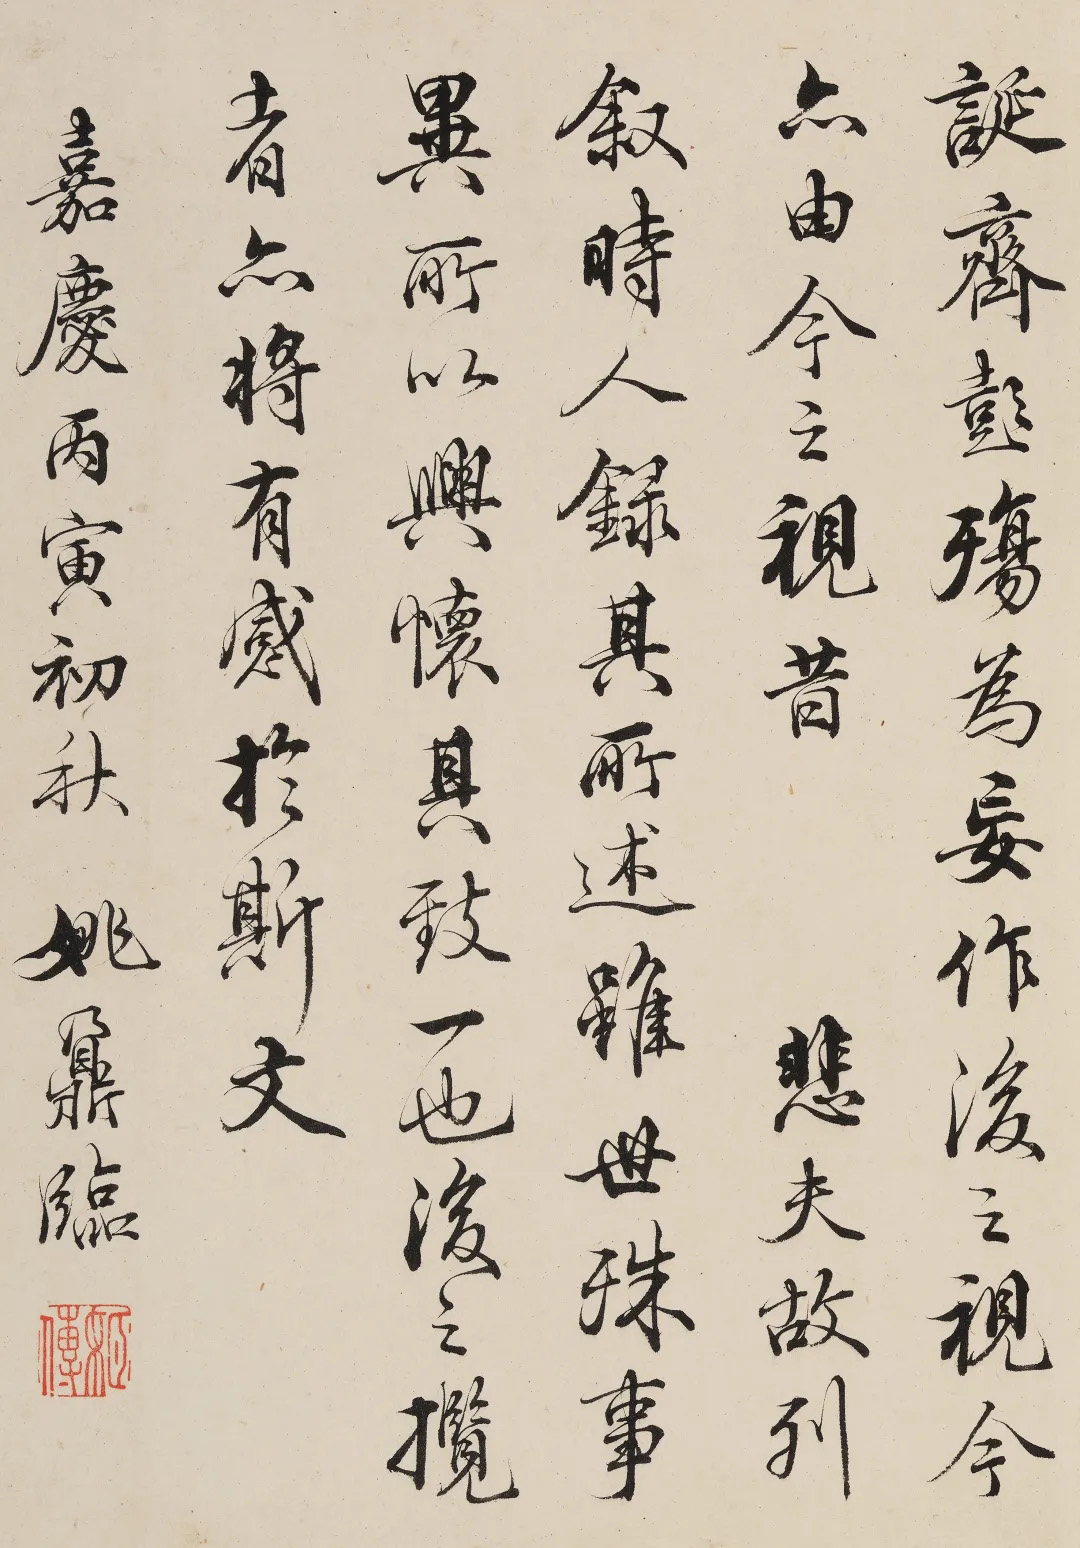 誕齊彭殤為妄作後之視今
亦由今之視昔 悲夫故列
叙時人録其所述雖世殊事
異所以興懷其致一也後之攬
者亦將有感於斯文
嘉慶丙寅初秋 姚鼐臨